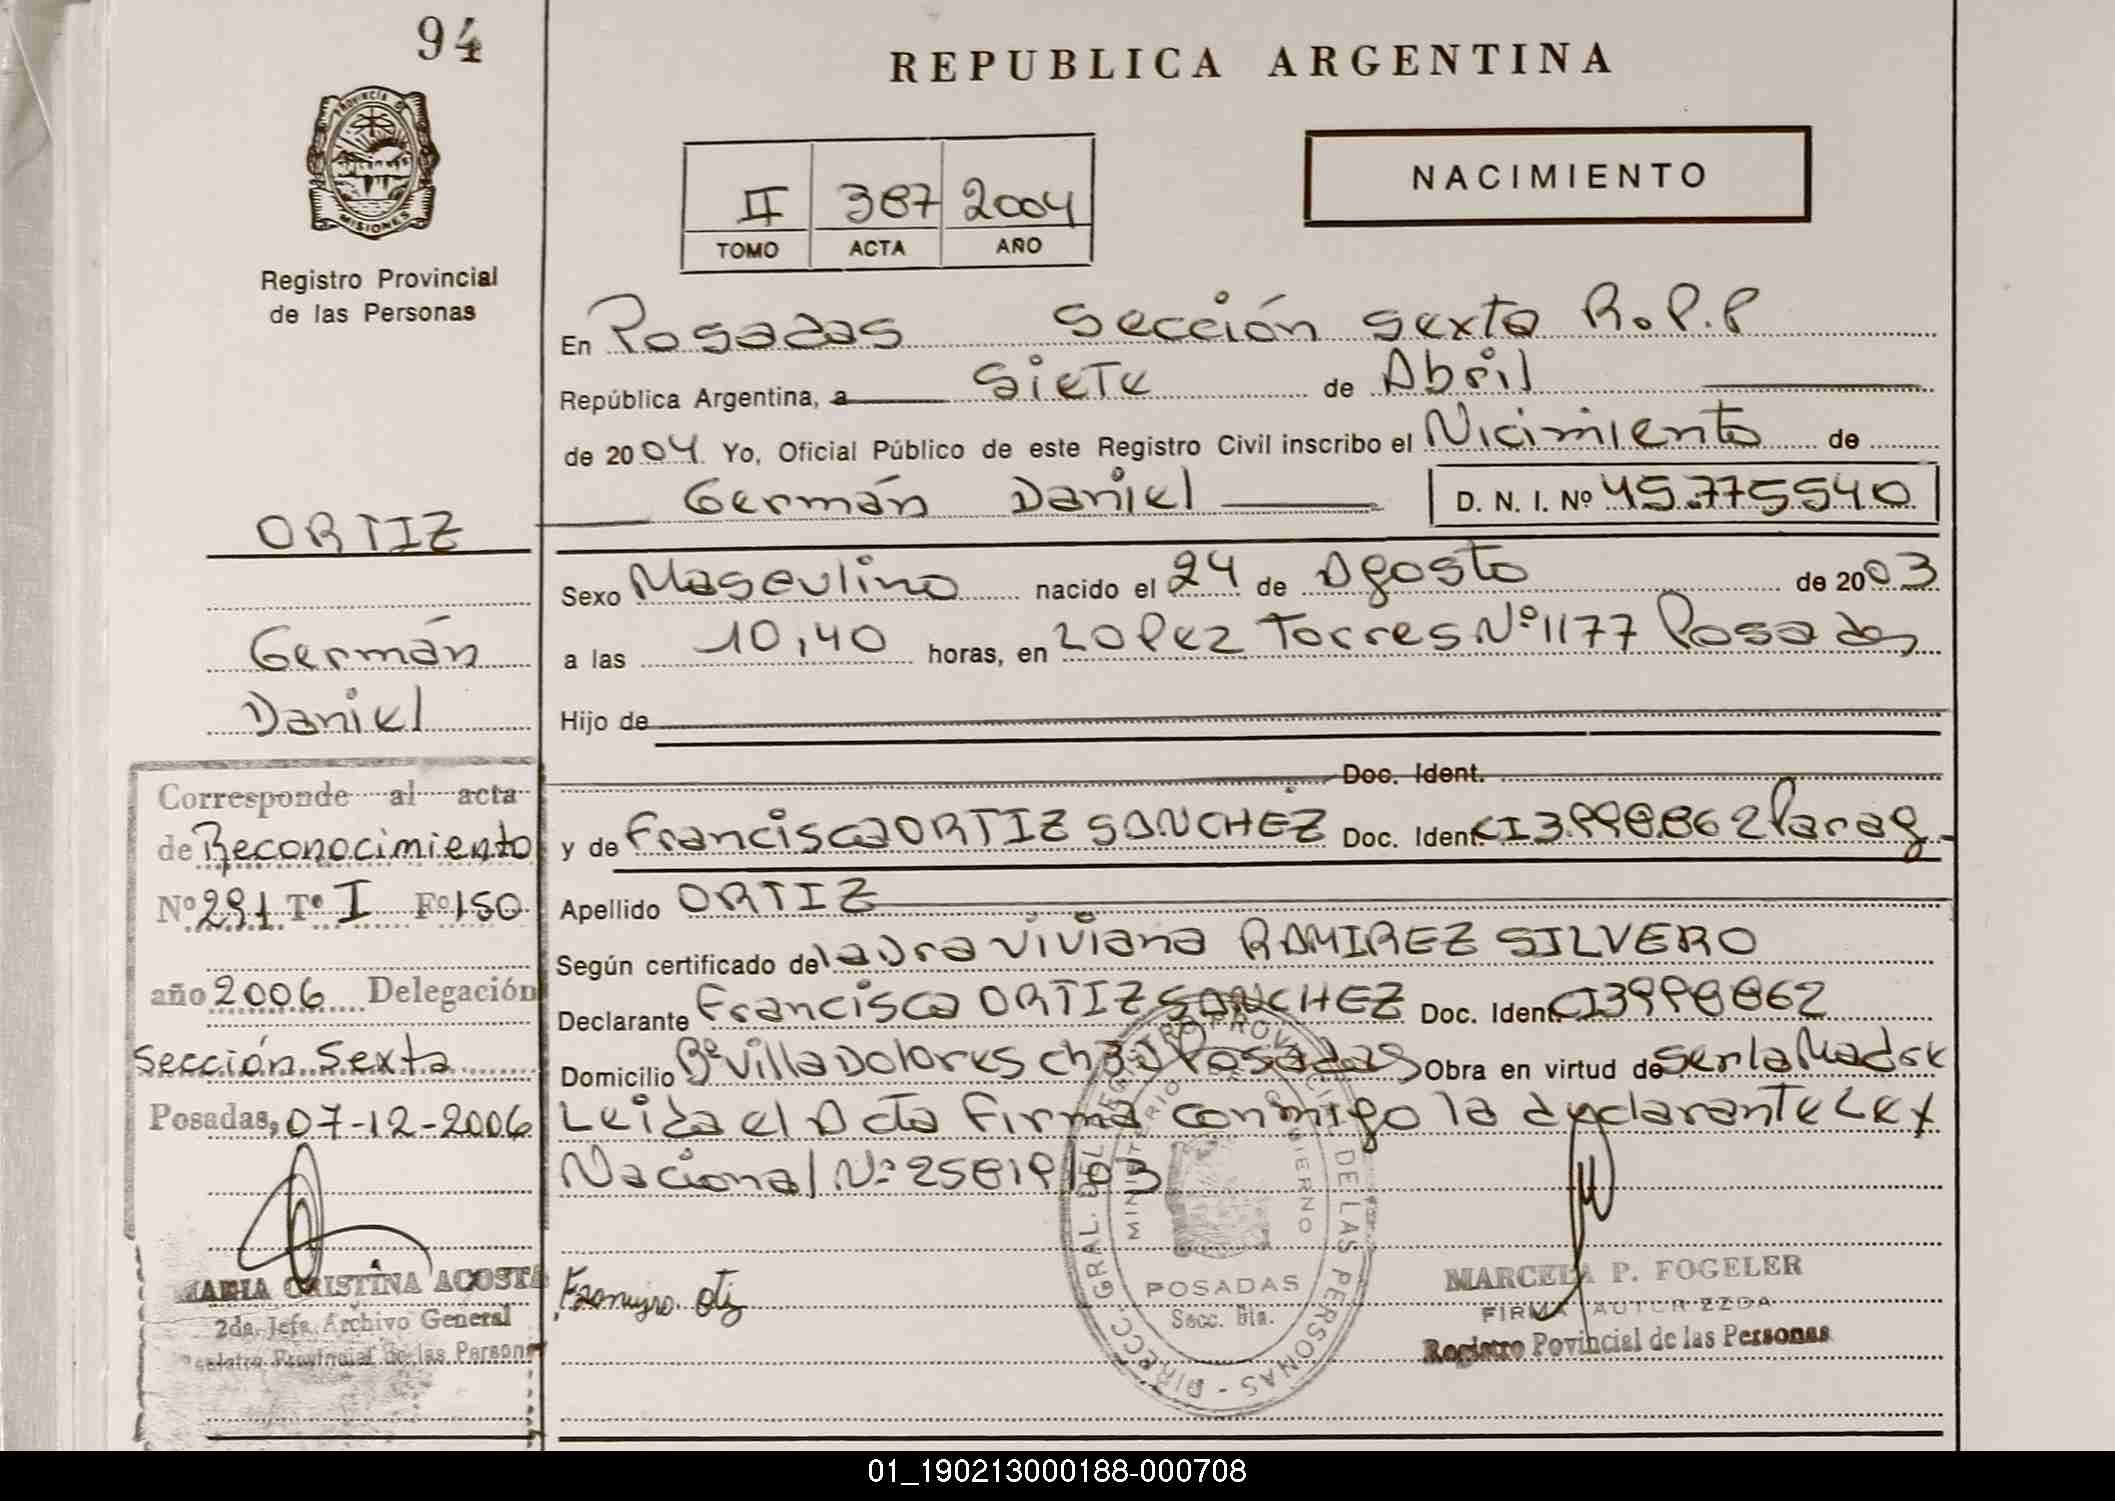 94
REPUBLICA ARGENTINA
PROVINCIA DE
MISIONES
Registro Provincial
de las Personas
II 387 2004
TOMO ACTA AÑO
NACIMIENTO
En Posadas Sección Sexta R.P.P
República Argentina, a Siete de Abril
de 2004 Yo, Oficial Público de este Registro Civil inscribo el Nicimiento de
Germán Daniel D. N. I. Nº 45.775540
ORTIZ
Germán
Daniel
Sexo Masculino nacido el 24 de Agosto de 2003
a las 10,40 horas, en LOPez Torres Nº 1177 Posadas
Hijo de
Doc. Ident.
y de Francisca ORTIZ SANCHEZ Doc. Ident. CI 3.998.862 Parag
Apellido ORTIZ
Según certificado de la Dra Viviana RAMIREZ SILVERO
Declarante Francisca ORTIZ SANCHEZ Doc. Ident. CI 3998862
Domicilio Bº Villa Dolores Ch Posadas Obra en virtud de Ser la Madre
Leida el Acta Firma conmigo la declarante Ley
Nacional Nº 25819/03
Corresponde al acta
de Reconocimiento
Nº 291 Tº I Fº 150
año 2006 Delegación
Sección Sexta
Posadas, 07-12-2006
MARIA CRISTINA ACOSTA
2da. Jefa Archivo General
Registro Provincial de las Personas
DIRECC. GRAL. DEL REGISTRO PROVINCIAL DE LAS PERSONAS
MINISTERIO DE GOBIERNO
POSADAS
Secc. 6ta.
MARCELA P. FOGELER
FIRMA AUTORIZADA
Registro Povincial de las Personas
01_190213000188-000708